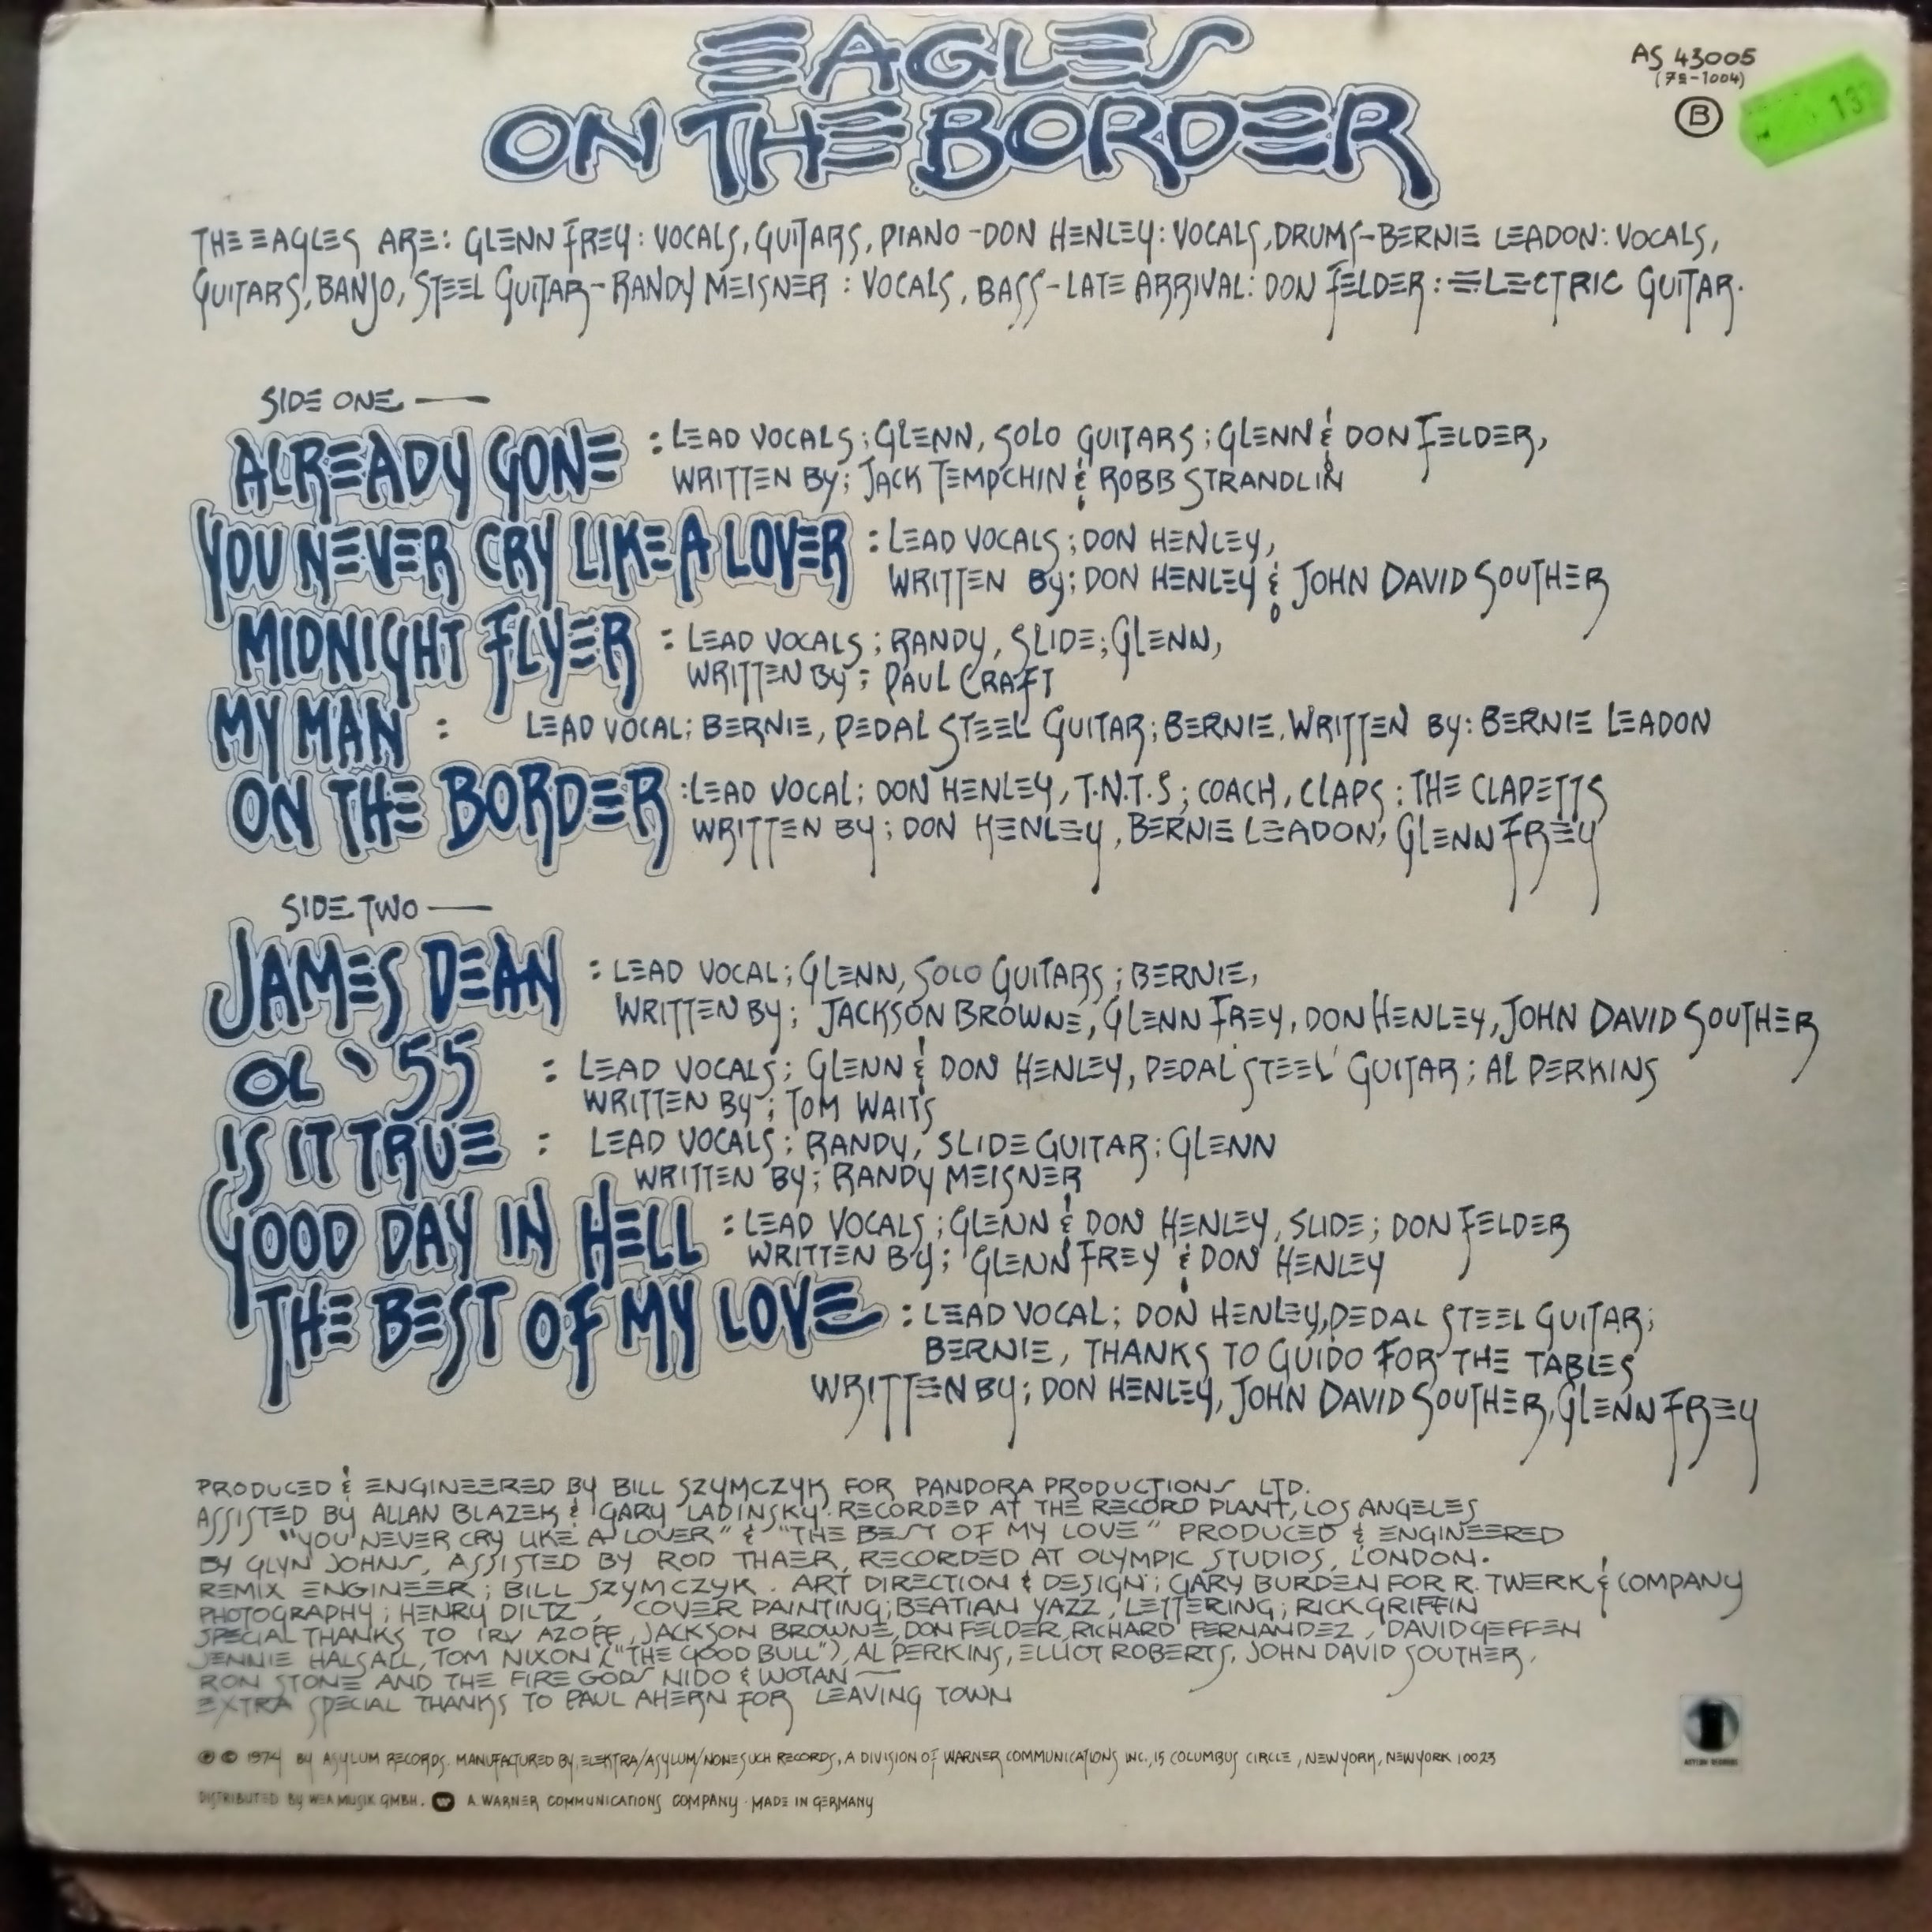 EAGLES
ON THE BORDER
AS 43005
(7E-1004)
B
13
THE EAGLES ARE: GLENN FREY: VOCALS, GUITARS, PIANO - DON HENLEY: VOCALS, DRUMS - BERNIE LEADON: VOCALS,
GUITARS, BANJO, STEEL GUITAR - RANDY MEISNER: VOCALS, BASS - LATE ARRIVAL: DON FELDER: ELECTRIC GUITAR.
SIDE ONE —
ALREADY GONE : LEAD VOCALS; GLENN, SOLO GUITARS; GLENN & DON FELDER,
WRITTEN BY; JACK TEMPCHIN & ROBB STRANDLIN
YOU NEVER CRY LIKE A LOVER : LEAD VOCALS; DON HENLEY,
WRITTEN BY; DON HENLEY & JOHN DAVID SOUTHER
MIDNIGHT FLYER : LEAD VOCALS; RANDY, SLIDE; GLENN,
WRITTEN BY; PAUL CRAFT
MY MAN : LEAD VOCAL; BERNIE, PEDAL STEEL GUITAR; BERNIE. WRITTEN BY: BERNIE LEADON
ON THE BORDER : LEAD VOCAL; DON HENLEY, T.N.T.S; COACH, CLAPS: THE CLAPETTS
WRITTEN BY; DON HENLEY, BERNIE LEADON, GLENN FREY
SIDE TWO —
JAMES DEAN : LEAD VOCAL; GLENN, SOLO GUITARS; BERNIE,
WRITTEN BY; JACKSON BROWNE, GLENN FREY, DON HENLEY, JOHN DAVID SOUTHER
OL '55 : LEAD VOCALS; GLENN & DON HENLEY, PEDAL STEEL GUITAR; AL PERKINS
WRITTEN BY; TOM WAITS
IS IT TRUE : LEAD VOCALS; RANDY, SLIDE GUITAR: GLENN
WRITTEN BY; RANDY MEISNER
GOOD DAY IN HELL : LEAD VOCALS; GLENN & DON HENLEY, SLIDE; DON FELDER
WRITTEN BY; GLENN FREY & DON HENLEY
THE BEST OF MY LOVE : LEAD VOCAL; DON HENLEY, PEDAL STEEL GUITAR;
BERNIE, THANKS TO GUIDO FOR THE TABLES
WRITTEN BY; DON HENLEY, JOHN DAVID SOUTHER, GLENN FREY
PRODUCED & ENGINEERED BY BILL SZYMCZYK FOR PANDORA PRODUCTIONS LTD.
ASSISTED BY ALLAN BLAZEK & GARY LADINSKY. RECORDED AT THE RECORD PLANT, LOS ANGELES
"YOU NEVER CRY LIKE A LOVER" & "THE BEST OF MY LOVE" PRODUCED & ENGINEERED
BY GLYN JOHNS, ASSISTED BY ROD THAER, RECORDED AT OLYMPIC STUDIOS, LONDON.
REMIX ENGINEER; BILL SZYMCZYK. ART DIRECTION & DESIGN; GARY BURDEN FOR R. TWERK & COMPANY
PHOTOGRAPHY; HENRY DILTZ, COVER PAINTING; BEATIAN YAZZ, LETTERING; RICK GRIFFIN
SPECIAL THANKS TO IRV AZOFF, JACKSON BROWNE, DON FELDER, RICHARD FERNANDEZ, DAVID GEFFEN
JENNIE HALSALL, TOM NIXON ("THE GOOD BULL"), AL PERKINS, ELLIOT ROBERTS, JOHN DAVID SOUTHER,
RON STONE AND THE FIRE GODS NIDO & WOTAN —
EXTRA SPECIAL THANKS TO PAUL AHERN FOR LEAVING TOWN
℗ © 1974 BY ASYLUM RECORDS. MANUFACTURED BY ELEKTRA/ASYLUM/NONESUCH RECORDS, A DIVISION OF WARNER COMMUNICATIONS INC., 15 COLUMBUS CIRCLE, NEW YORK, NEW YORK 10023
DISTRIBUTED BY WEA MUSIK GMBH. A WARNER COMMUNICATIONS COMPANY · MADE IN GERMANY
ASYLUM RECORDS